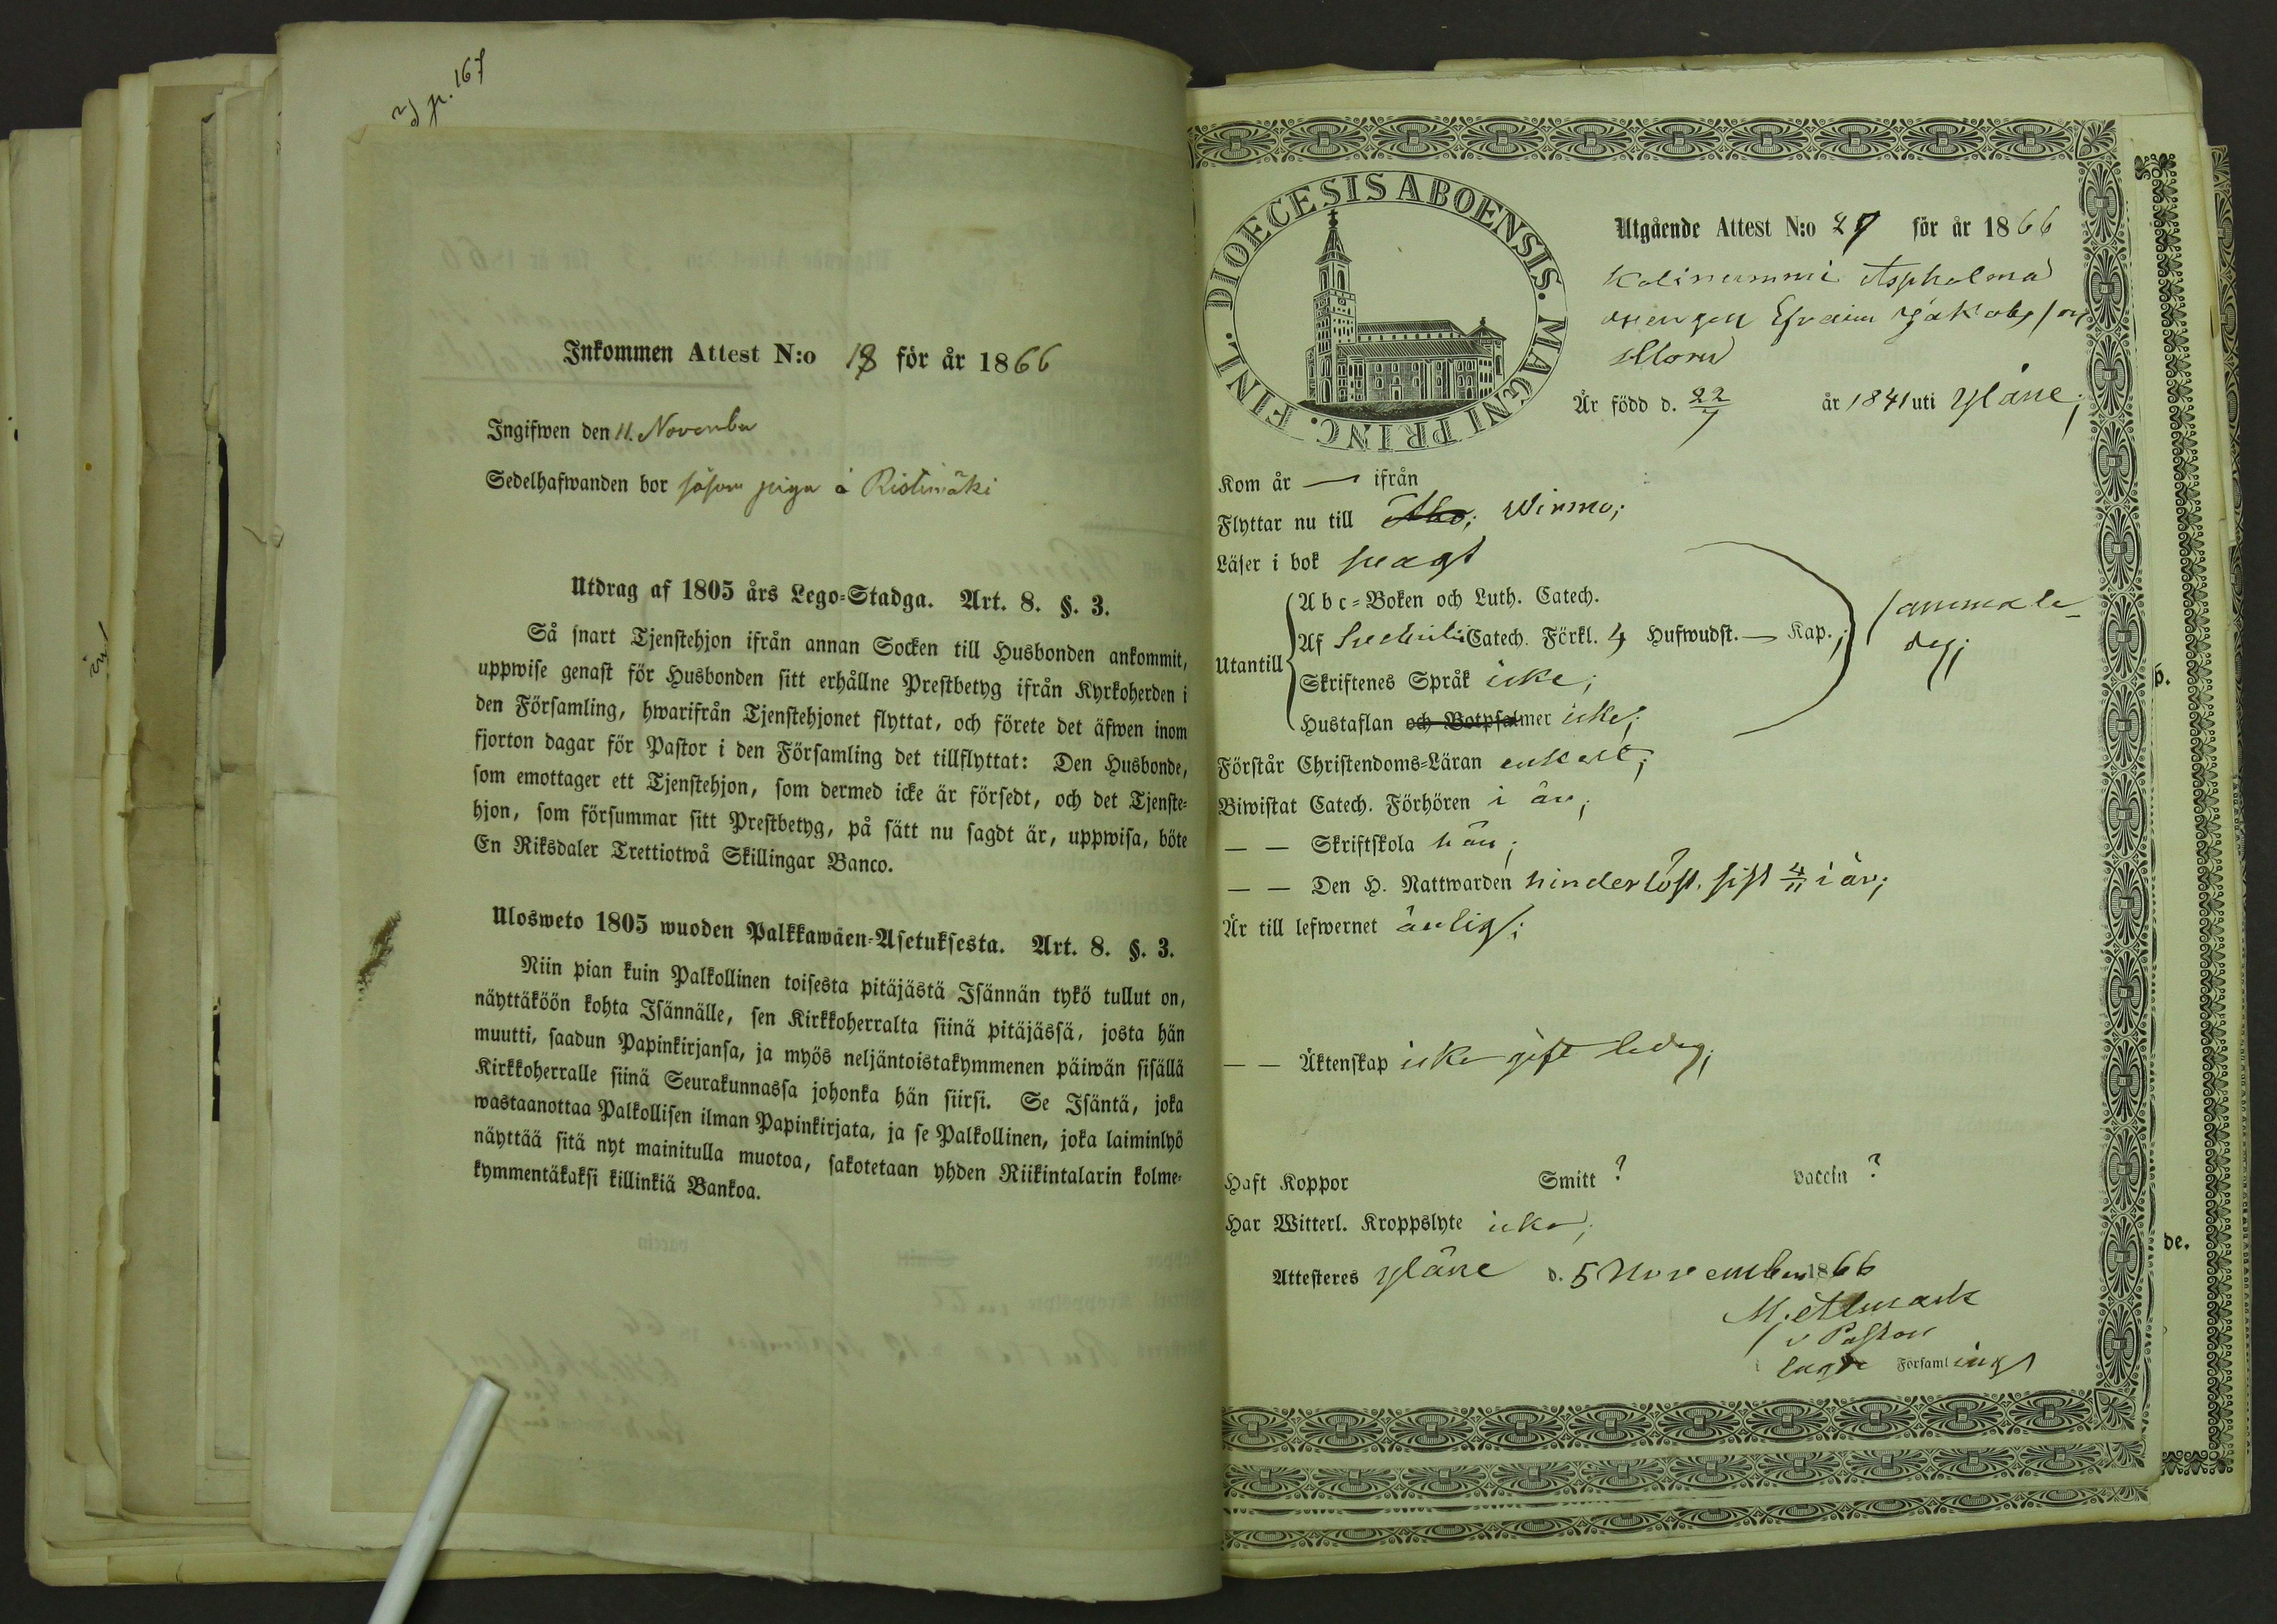 p. 167
Inkommen Attest N:o 18 för år 1866
Ingifwen den 11. November
Sedelhafwanden bor såsom piga å Ristimäki
Utdrag af 1805 års Lego-Stadga. Art. 8. §. 3.
Så snart Tjenstehjon ifrån annan Socken till Husbonden ankommit,
uppwise genast för Husbonden sitt erhållne Prestbetyg ifrån Kyrkoherden i
den Församling, hwarifrån Tjenstehjonet flyttat, och förete det äfwen inom
fjorton dagar för Pastor i den Församling det tillflyttat: Den Husbonde,
som emottager ett Tjenstehjon, som dermed icke är försedt, och det Tjenste-
hjon, som försummar sitt Prestbetyg, på sätt nu sagdt är, uppwisa, böte
En Riksdaler Trettiotwå Skillingar Banco.
Ulosweto 1805 wuoden Palkkawäen-Asetuksesta. Art. 8. §. 3.
Niin pian kuin Palkollinen toisesta pitäjästä Isännän tykö tullut on,
näyttäköön kohta Isännälle, sen Kirkkoherralta siinä pitäjässä, josta hän
muutti, saadun Papinkirjansa, ja myös neljäntoistakymmenen päiwän sisällä
Kirkkoherralle siinä Seurakunnassa johonka hän siirsi. Se Isäntä, joka
wastaanottaa Palkollisen ilman Papinkirjata, ja se Palkollinen, joka laiminlyö
näyttää sitä nyt mainitulla muotoa, sakotetaan yhden Riikintalarin kolme-
kymmentäkaksi killinkiä Bankoa.
DIOECESIS ABOENSIS. MAGNI PRINC. FINL.
Utgående Attest N:o 29 för år 1866
drengen Efraim Jakobsson
Är född d. 22/7 år 1841 uti Yläne;
Kom år — ifrån
Flyttar nu till Åbo; Wirmo;
Läser i bok svagt
Utantill
Abc-Boken och Luth. Catech.
Af Svebilii Catech. Förkl. 4 Hufwudst. — Kap.;
Skriftenes Språk icke;
Hustaflan och Botpsalmer icke;
sammale-
des;
Förstår Christendoms-Läran enkelt;
Biwistat Catech. Förhören i år;
— — Skriftskola här;
— — Den H. Nattwarden hinderlöst. sist 4/11 i år;
Är till lefwernet ärlig;
— — Äktenskap icke gift ledig;
Haft Koppor Smitt ? vaccin ?
Har Witterl. Kroppslyte icke;
Attesteres Yläne d. 5 November 1866
M. Almark
v Pastor
Församlings